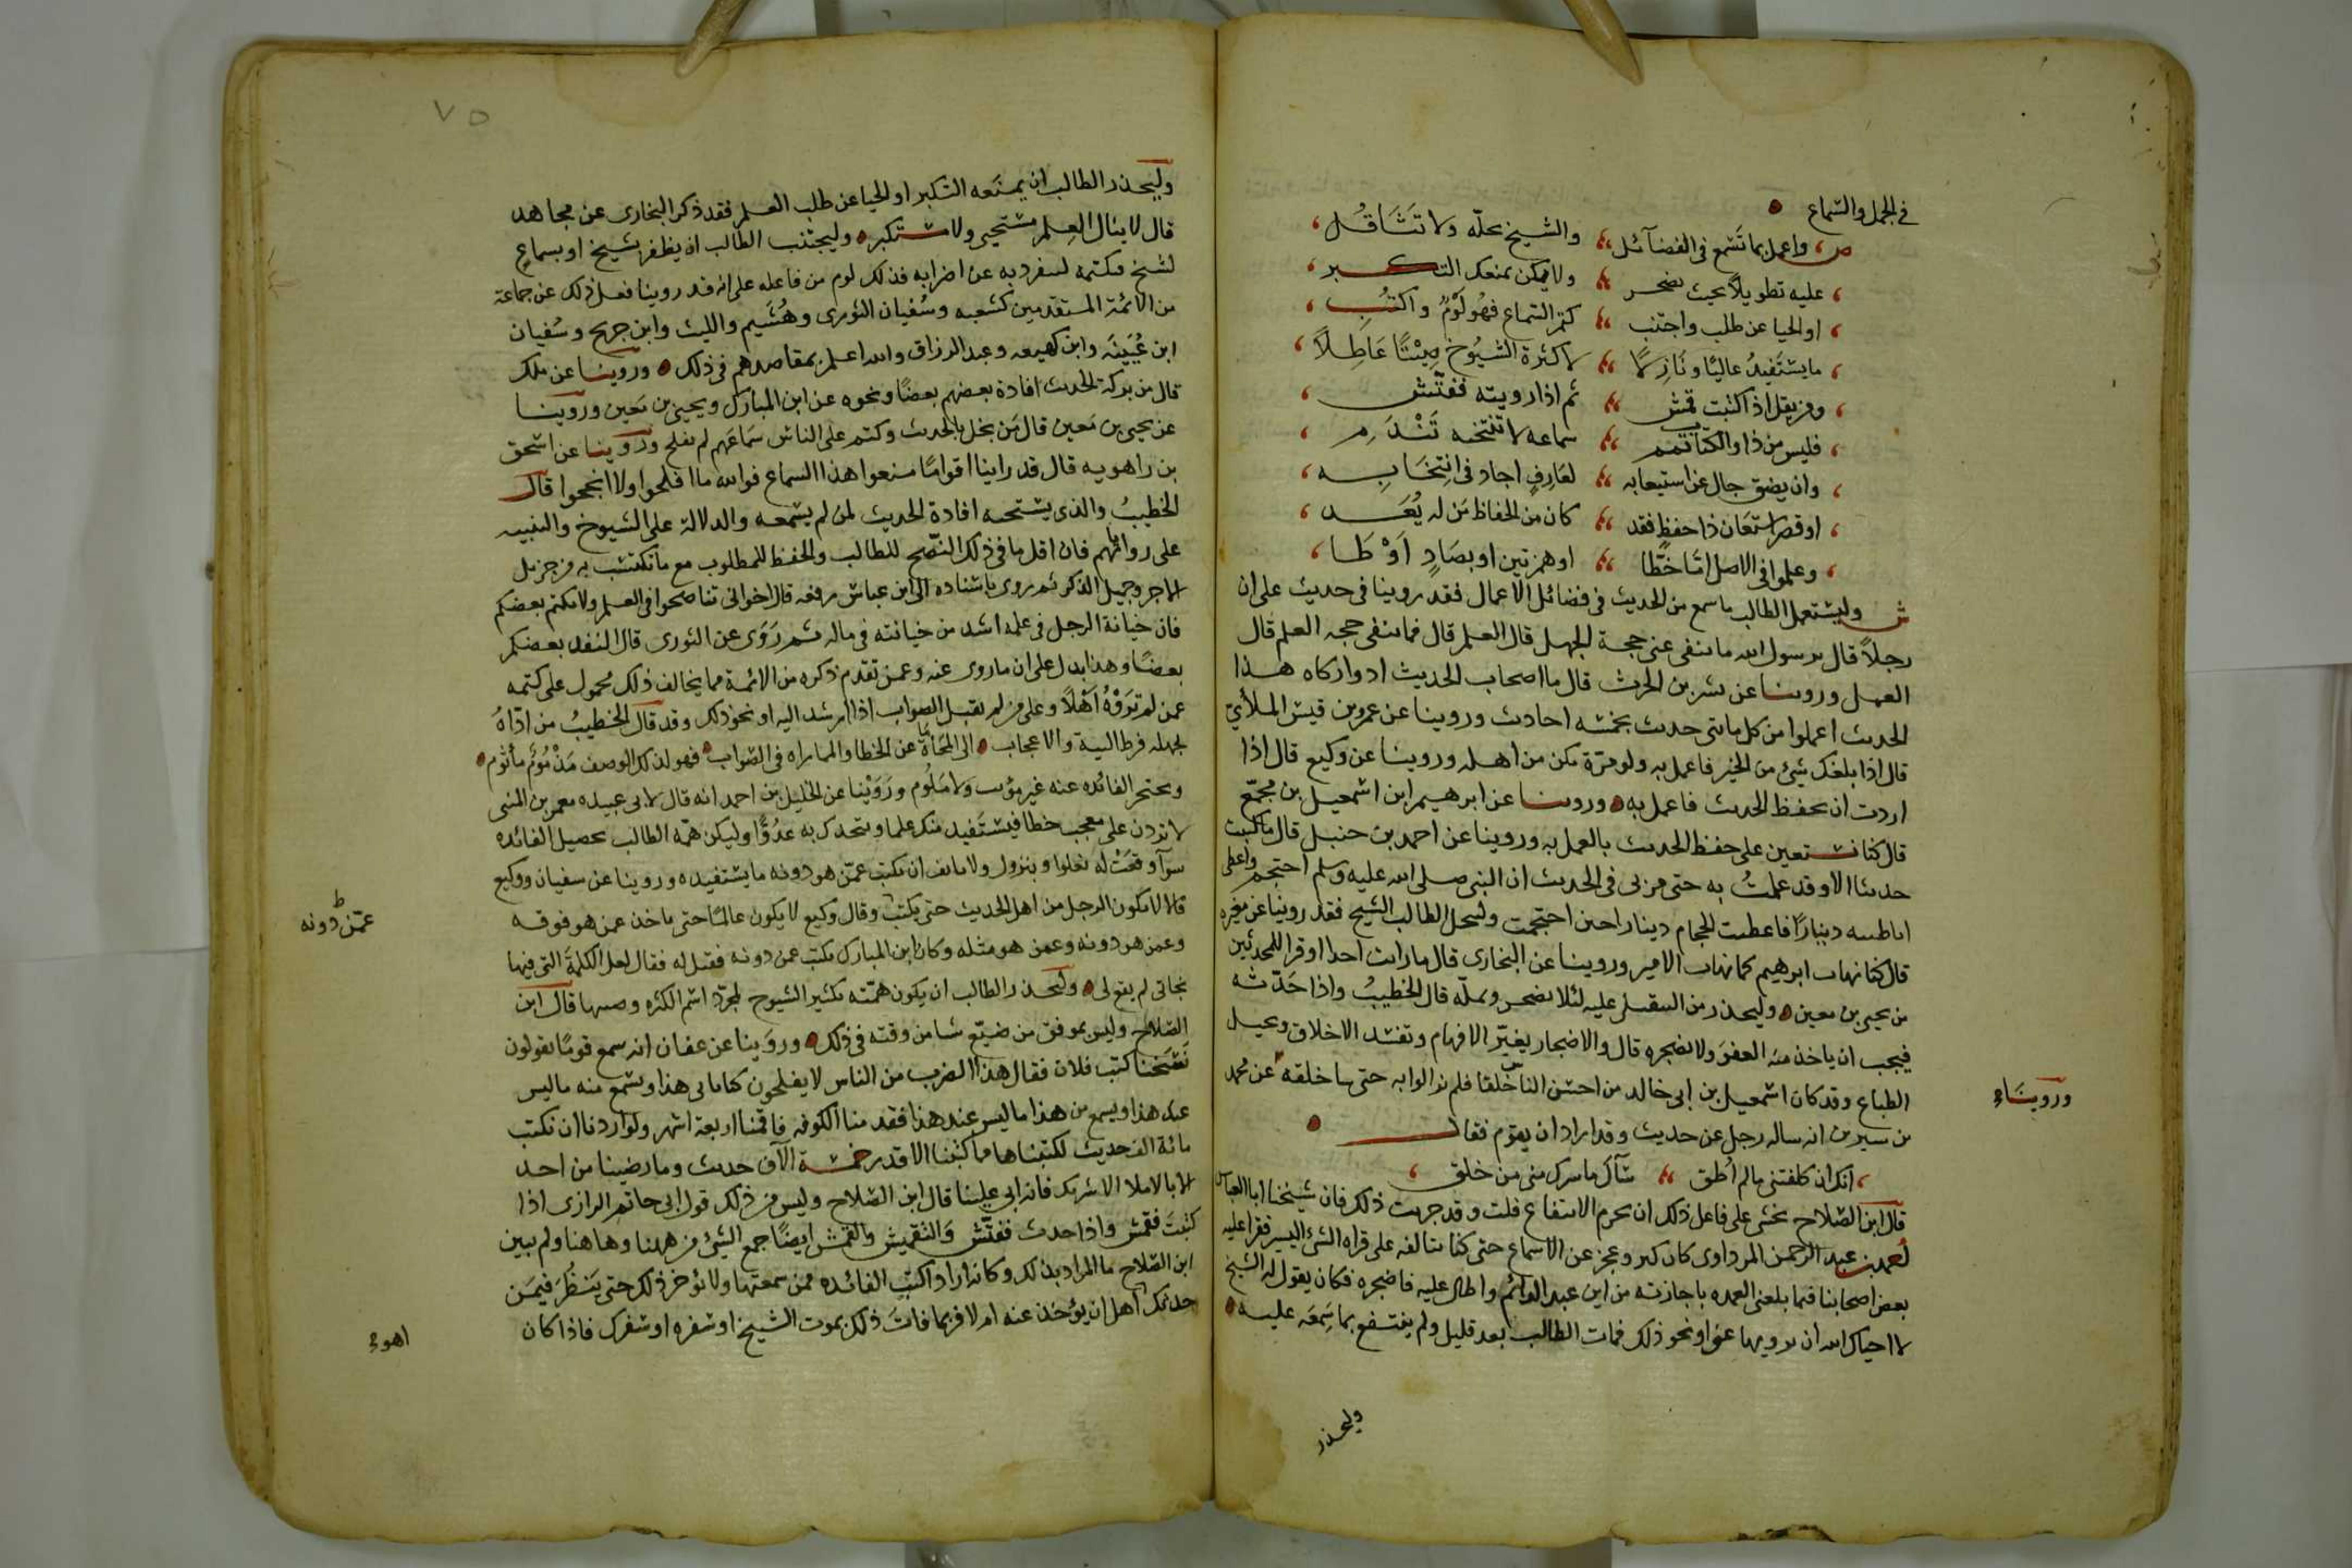 في الحمل والسماع
ص، واعمل بما تسمع في الفضائل والشيخ بجله ولا تثاقل،
، عليه تطويلا بحيث يضجر ولا تكن يمنعك التكبر،
، او الحيا عن طلب واجتنب كتم السماع فهو لؤم واكتب،
، ما يستفيد عاليا ونازلا لا كثرة الشيوخ صيتا عاطلا،
، ومن يقل اذا كتبت قمش ثم اذا رويته ففتش،
، فليس من ذا والكتاب تمم سماعه لا تنتخبه تندم،
، وان يضق حال عن استيعابه لعارف اجاد في انتخابه،
، او قصر استعان ذا حفظ فقد كان من الحفاظ من له يعد،
، وعلموا في الاصل اما خطا او همزتين او بصاد او طا،
ش وليستعمل الطالب ما سمع من الحديث في فضائل الاعمال فقد روينا في حديث علي ان
رجلا قال يرسول الله ما ينفى عني حجة الجهل قال العلم قال فما ينفى حجه العلم قال
العمل وروينا عن بشر بن الحرث قال يا اصحاب الحديث ادوا زكاه هذا
الحديث اعملوا من كل مايتي حديث بخمسه احاديث وروينا عن عمرو بن قيس الملائي
قال اذا بلغك شئ من الخير فاعمل به ولو مرة تكن من اهله وروينا عن وكيع قال اذا
اردت ان تحفظ الحديث فاعمل به وروينا عن ابرهيم ابن اسمعيل بن مجمع
قال كنا نستعين على حفظ الحديث بالعمل به وروينا عن احمد بن حنبل قال ما كتبت
حديثا الا وقد عملت به حتى مر بي في الحديث ان النبي صلى الله عليه وسلم احتجم واعطى
ابا طيبه دينارا فاعطيت الحجام دينارا حين احتجمت وليبجل الطالب الشيخ فقد روينا عن مغيره
قال كنا نهاب ابرهيم كما نهاب الامير وروينا عن البخاري قال ما رايت احدا اوقر للمحدثين
من يحيى بن معين وليحذر من التثقيل عليه لئلا يضجر ويمله قال الخطيب واذا حدثه
فيجب ان ياخذ منه العفو ولا يضجره قال والاضجار يغير الافهام ويفسد الاخلاق ويحيل
الطباع وقد كان اسمعيل بن ابي خالد من احسن الناس خلقا فلم يزالوا به حتى سا خلقه عن محمد
وروينا
بن سيرين انه ساله رجل عن حديث وقد اراد ان يقوم فقال
، انك ان كلفتني ما لم اطق ساك ما سرك مني من خلق،
قال ابن الصلاح يخشى على فاعل ذلك ان يحرم الانتفاع قلت وقد جربت ذلك فان شيخنا ابا العباس
احمد بن عبد الرحمن المرداوي كان كبر وعجز عن الاسماع حتى كنا نتالفه على قراه الشئ اليسير فقرا عليه
بعض اصحابنا فيما بلغني العمده باجازته من ابن عبد الدائم واطال عليه فاضجره فكان يقول له الشيخ
لا احياك الله ان ترويها عني او نحو ذلك فمات الطالب بعد قليل ولم ينتفع بما سمعه عليه
وليحذر
٧٥
وليحذر الطالب ان يمنعه التكبر او الحيا عن طلب العلم فقد ذكر البخاري عن مجاهد
قال لا ينال العلم مستحيي ولا مستكبر وليجتنب الطالب ان يظفر بشيخ او بسماع
لشيخ فيكتمه لينفرد به عن اضرابه فذلك لوم من فاعله على انه قد روينا فعل ذلك عن جماعة
من الائمة المتقدمين كشعبه وسفيان الثوري وهشيم والليث وابن جريج وسفيان
ابن عيينه وابن لهيعه وعبد الرزاق والله اعلم بمقاصدهم في ذلك وروينا عن ملك
قال من بركة الحديث افادة بعضهم بعضا ونحوه عن ابن المبارك ويحيى بن معين وروينا
عن يحيى بن معين قال من بخل بالحديث وكتم على الناس سماعهم لم يفلح وروينا عن اسحق
بن راهويه قال قد راينا اقواما منعوا هذا السماع فوالله ما افلحوا ولا انجحوا قال
الخطيب والذي يستحب افادة الحديث لمن لم يسمعه والدلالة على الشيوخ والتنبيه
على رواياتهم فان اقل ما في ذلك النصح للطالب والحفظ للمطلوب مع ما يكتسب به من جزيل
الاجر وجميل الذكر ثم روى باسناده الى ابن عباس رفعه قال اخواني تناصحوا في العلم ولا يكتم بعضكم
فان خيانة الرجل في علمه اشد من خيانته في ماله ثم روى عن الثوري قال ليفد بعضكم
بعضا وهذا يدل على ان ما روى عنه وعمن تقدم ذكره من الائمة مما يخالف ذلك محمول على كتمه
عمن لم تروه اهلا وعلى من لم يقبل الصواب اذا ارشد اليه او نحو ذلك وقد قال الخطيب من اداه
لجهله فرط التيه والاعجاب الى المحاماة عن الخطا والمماراه في الصواب فهو لذلك الوصف مذموم ماثوم
ومحتجر الفائده عنه غير مؤنب ولا ملوم وروينا عن الخليل بن احمد انه قال لابي عبيده معمر بن المثنى
لا تردن على معجب خطا فيستفيد منك علما ويتخذك به عدوا وليكن همه الطالب تحصيل الفائده
سوآ وقعت له بعلو او بنزول ولا يانف ان يكتب عمن هو دونه ما يستفيده وروينا عن سفيان ووكيع
قالا لا يكون الرجل من اهل الحديث حتى يكتب وقال وكيع لا يكون عالما حتى ياخذ عمن هو فوقه
عمن دونه
وعمن هو دونه وعمن هو مثله وكان ابن المبارك يكتب عمن دونه فقيل له فقال لعل الكلمة التي فيها
نجاتي لم يقع لي وليحذر الطالب ان يكون همته تكثير الشيوخ لمجرد اسم الكثره وصيتها قال ابن
الصلاح وليس بموفق من ضيع شيا من وقته في ذلك وروينا عن عفان انه سمع قوما يقولون
نسخنا كتب فلان فقال هذا الضرب من الناس لا يفلحون كنا ناتي هذا ونسمع منه ما ليس
عند هذا ويسمع من هذا ما ليس عند هذا فقدمنا الكوفه فاقمنا اربعة اشهر ولو اردنا ان نكتب
مائة الف حديث لكتبناها فما كتبنا الا قدر خمسة الاف حديث وما رضينا من احد
الا بالاملا الا شريك فانه ابى علينا قال ابن الصلاح وليس من ذلك قول ابي حاتم الرازي اذا
كتبت فقمش واذا حدثت ففتش والتقميش والقمش ايضا جمع الشئ من ههنا وهاهنا ولم يبين
ابن الصلاح ما المراد بذلك وكانه اراد اكتب الفائده ممن سمعتها ولا تؤخر ذلك حتى ينظر فيمن
حدثك اهل ان يؤخذ عنه ام لا فربما فات ذلك بموت الشيخ او سفره او سفرك فاذا كان
اهو